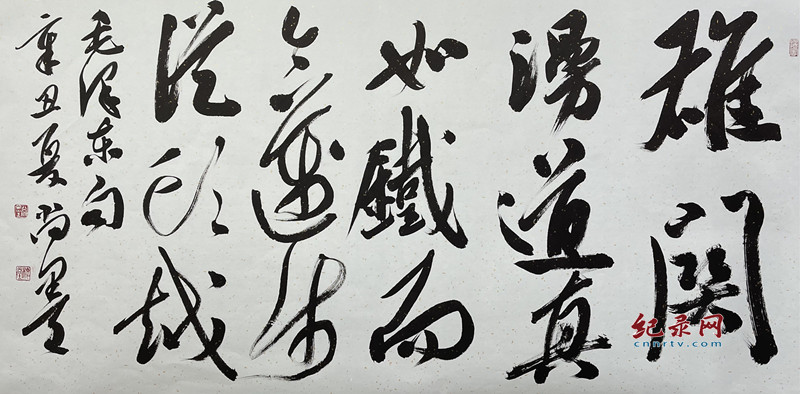 雄關
漫道真
如鐵而
今邁步
從頭越
毛澤東句
辛丑夏 尚墨
纪录网
cnnrtv.com